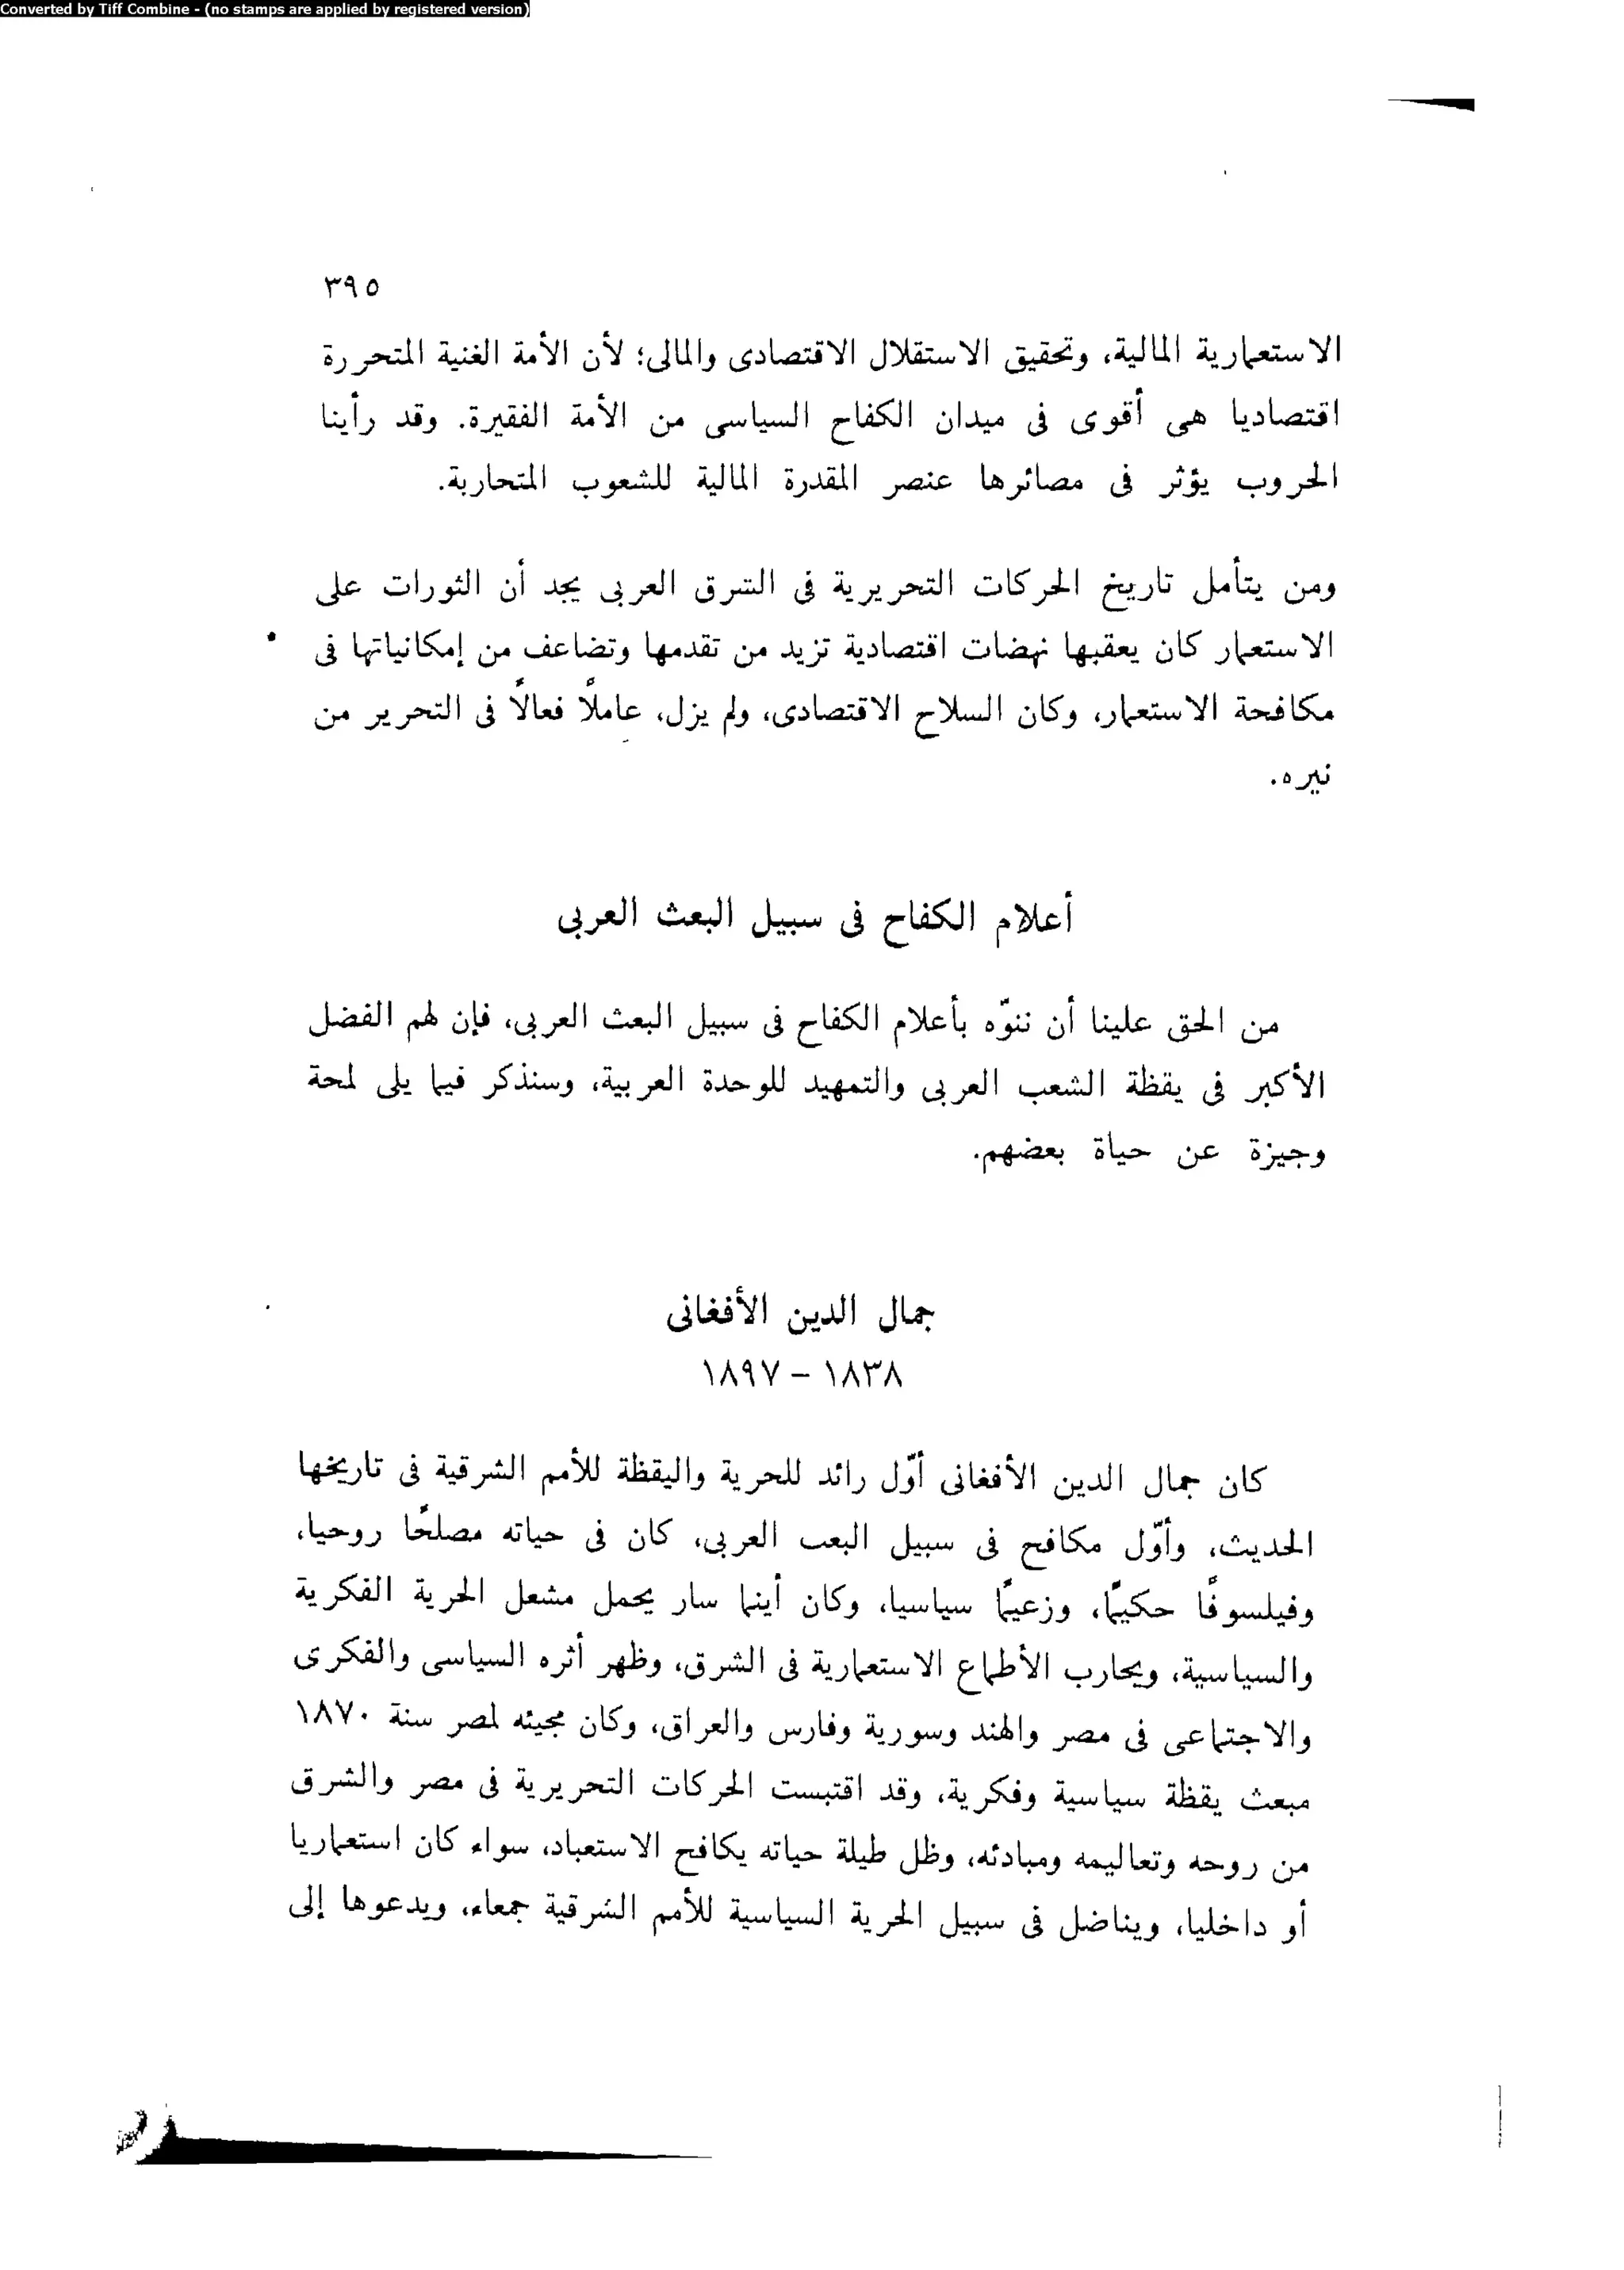 Converted by Tiff Combine - (no stamps are applied by registered version)
٣٩٥
الاستعمارية المالية، وتحقيق الاستقلال الاقتصادى والمالى؛ لأن الأمة الغنية المتحررة
اقتصاديا هى أقوى فى ميدان الكفاح السياسى من الأمة الفقيرة. وقد رأينا
الحروب يؤثر فى مصائرها عنصر المقدرة المالية للشعوب المتحاربة.
ومن يتأمل تاريخ الحركات التحريرية فى الشرق العربى يجد أن الثورات على
الاستعمار كان يعقبها نهضات اقتصادية تزيد من تقدمها وتضاعف من إمكانياتها فى
مكافحة الاستعمار، وكان السلاح الاقتصادى، ولم يزل، عاملاً فعالاً فى التحرير من
نيره.
أعلام الكفاح فى سبيل البعث العربى
من الحق علينا أن ننوّه بأعلام الكفاح فى سبيل البعث العربى، فإن لهم الفضل
الأكبر فى يقظة الشعب العربى والتمهيد للوحدة العربية، وسنذكر فيما يلى لمحة
وجيزة عن حياة بعضهم.
جمال الدين الأفغانى
١٨٣٨ – ١٨٩٧
كان جمال الدين الأفغانى أوّل رائد للحرية واليقظة للأمم الشرقية فى تاريخها
الحديث، وأوّل مكافح فى سبيل البعث العربى، كان فى حياته مصلحًا روحيا،
وفيلسوفًا حكيمًا، وزعيمًا سياسيا، وكان أينما سار يحمل مشعل الحرية الفكرية
والسياسية، ويحارب الأطماع الاستعمارية فى الشرق، وظهر أثره السياسى والفكرى
والاجتماعى فى مصر والهند وسورية وفارس والعراق، وكان مجيئه لمصر سنة ١٨٧٠
مبعث يقظة سياسية وفكرية، وقد اقتبست الحركات التحريرية فى مصر والشرق
من روحه وتعاليمه ومبادئه، وظل طيلة حياته يكافح الاستعباد، سواء كان استعماريا
أو داخليا، ويناضل فى سبيل الحرية السياسية للأمم الشرقية جمعاء، ويدعوها إلى